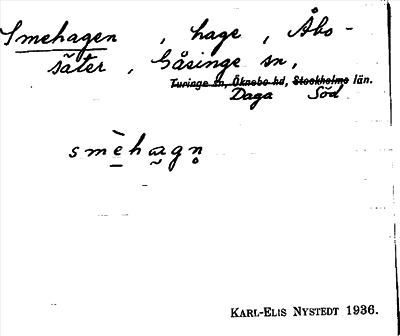 Smehagen, hage, Åbo-
säter, Gåsinge sn,
Turinge sn, Öknebo hd, Stockholms län.
Daga Söd
smèhagn
KARL-ELIS NYSTEDT 1936.